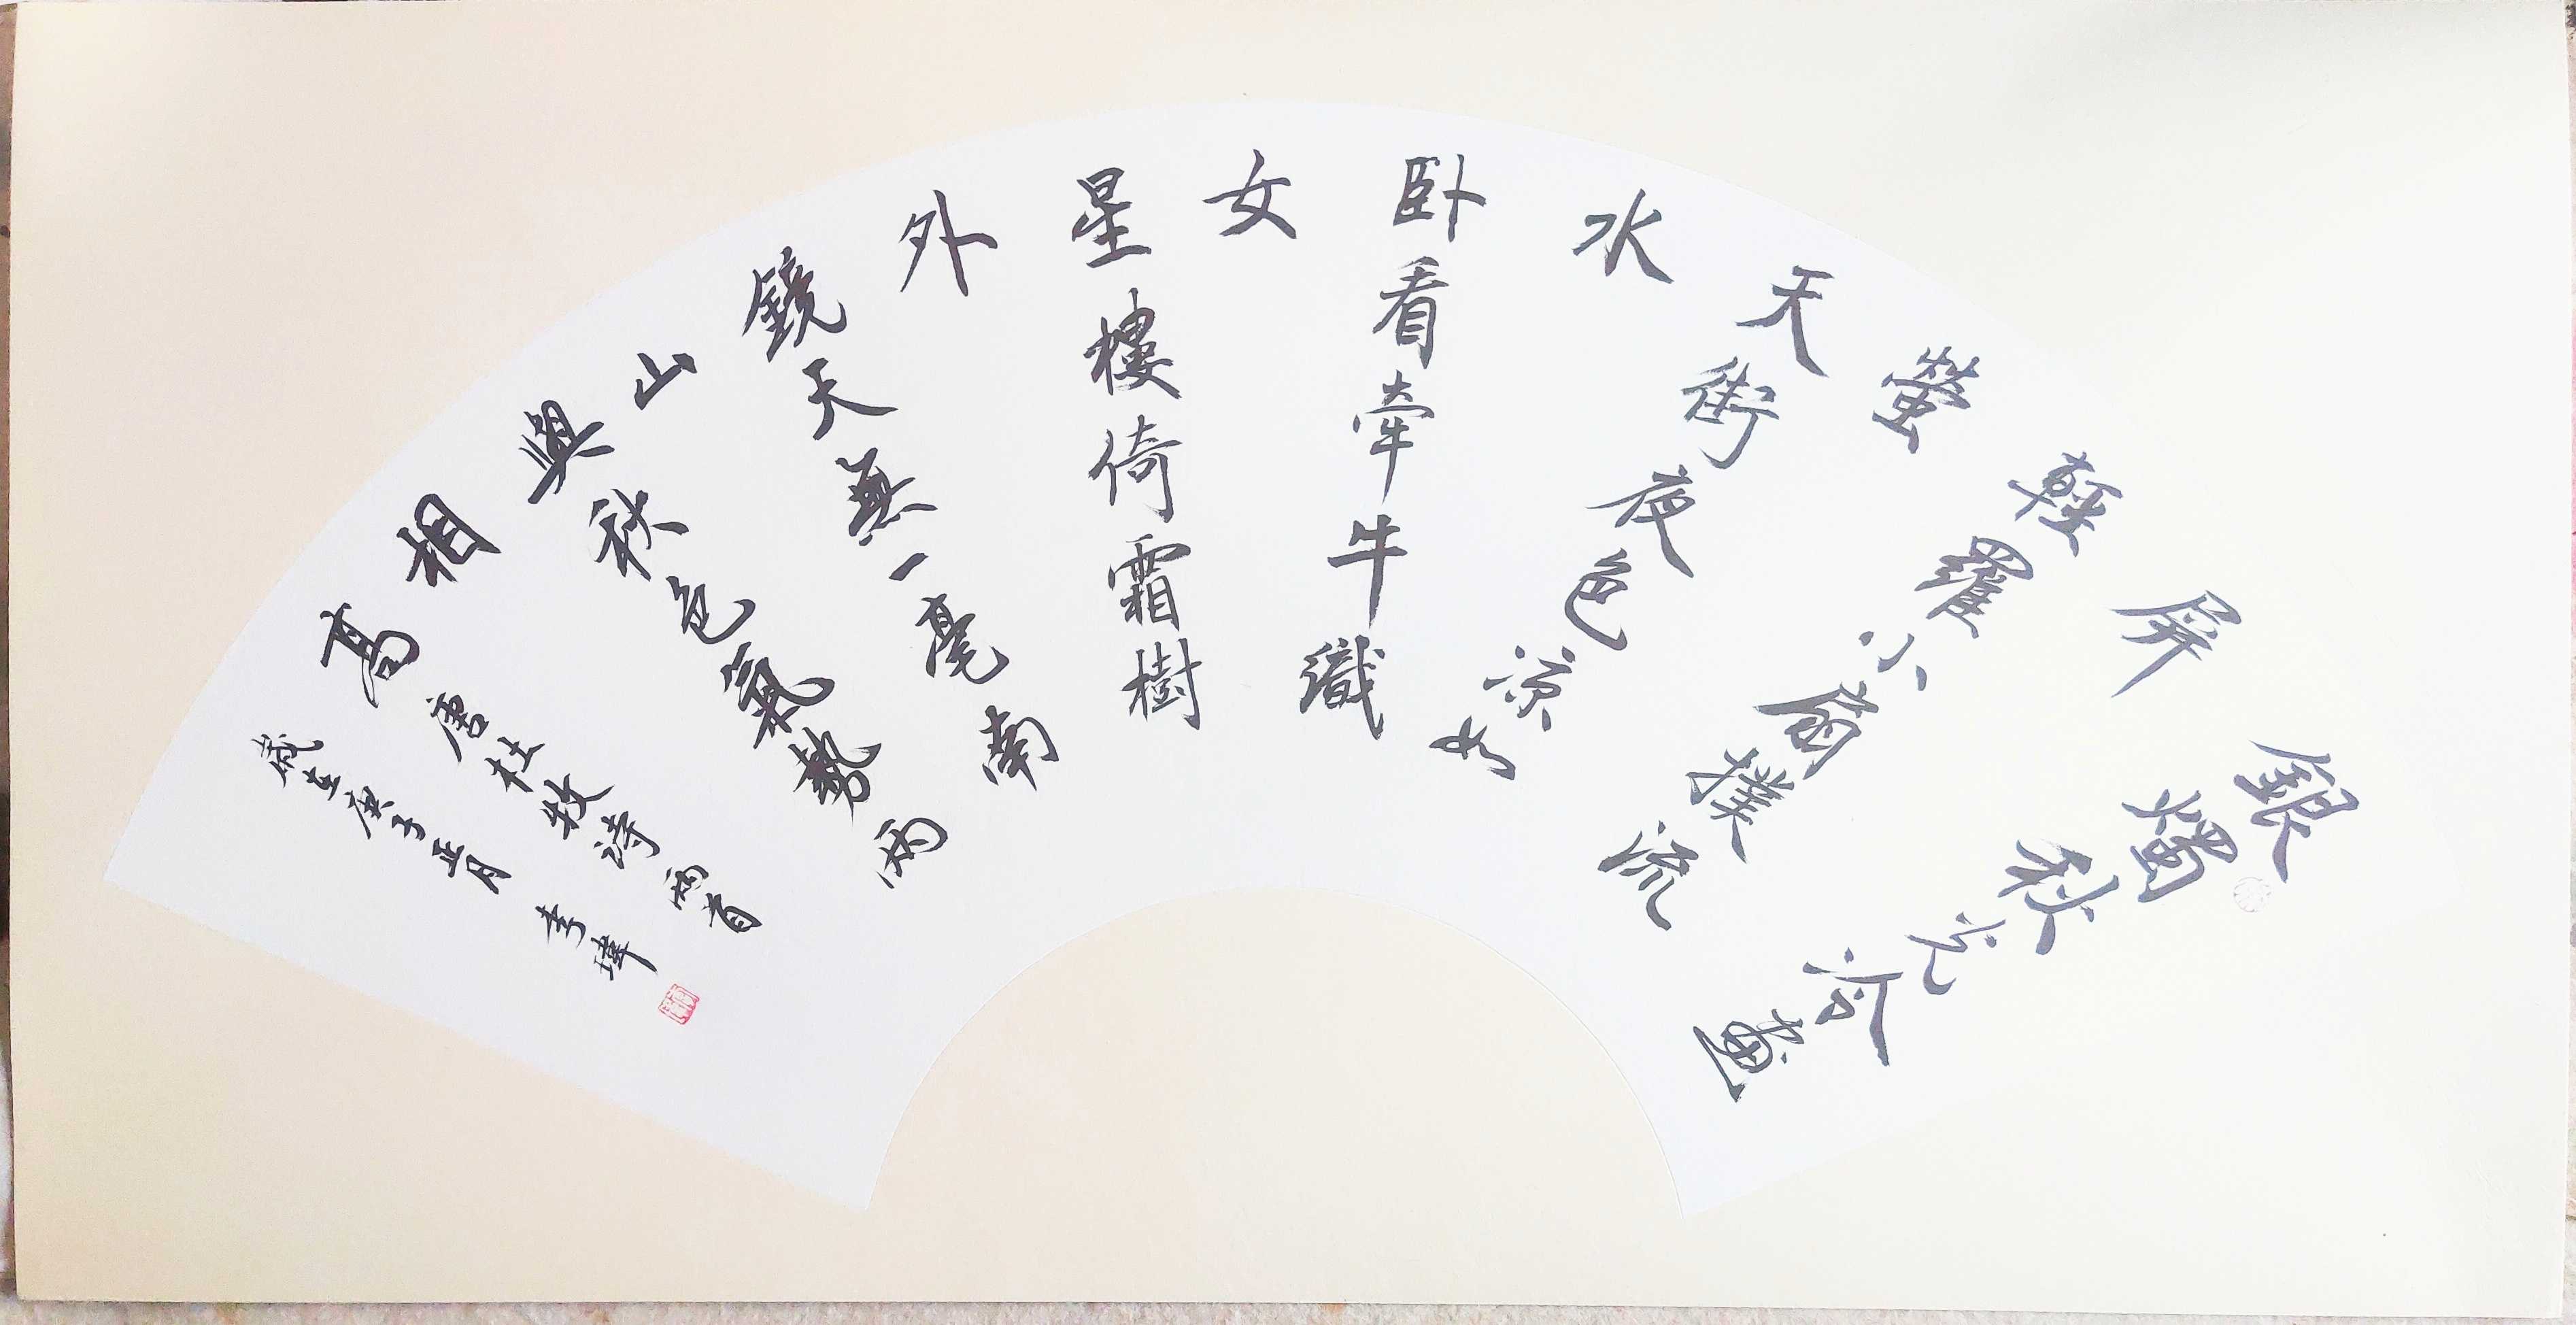 銀燭秋光冷畫
屏
輕羅小扇撲流
螢
天街夜色涼如
水
卧看牽牛織
女
星樓倚霜樹
外
鏡天無一毫南
山
秋色氣勢兩
與
相
高
唐杜牧詩兩首
歲在庚子正月 李瑋